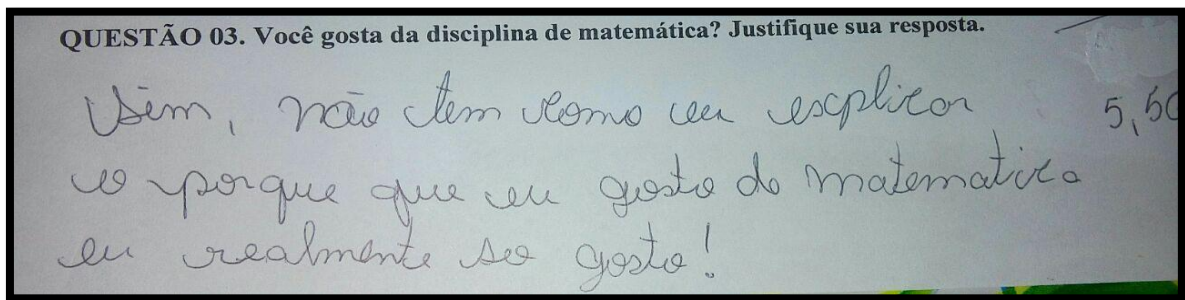 QUESTÃO 03. Você gosta da disciplina de matemática? Justifique sua resposta.
Sim, não tem como eu explicar 5,50
o porque que eu gosto de matematica
eu realmente so gosto!